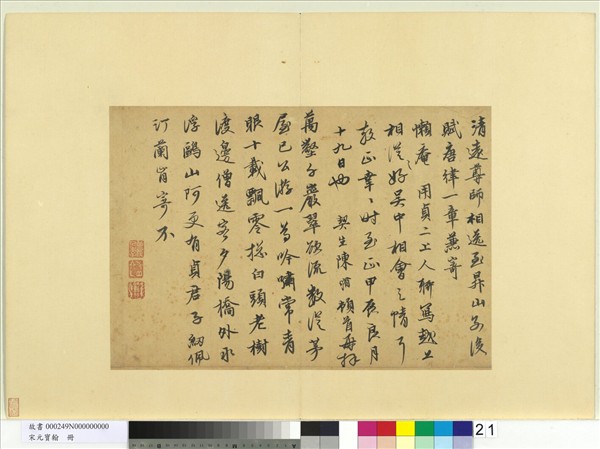 清遠尊師相送至昇山別後
賦唐律一章兼寄
懶庵用貞二上人聊寫越上
相從好吴中相會之情耳
教正幸〻時至正甲辰良月
十九日也 契生陳 頓首再拜
萬壑千巖翠欲流數從茅
屋已公游一为吟嘯常青
眼十載飄零揔白頭老樹
渡邊僧送客夕陽橋外水
浮鷗山阿更有貞君子紉佩
汀蘭肯寄不
故書 000249N000000000
宋元寶翰 冊
21